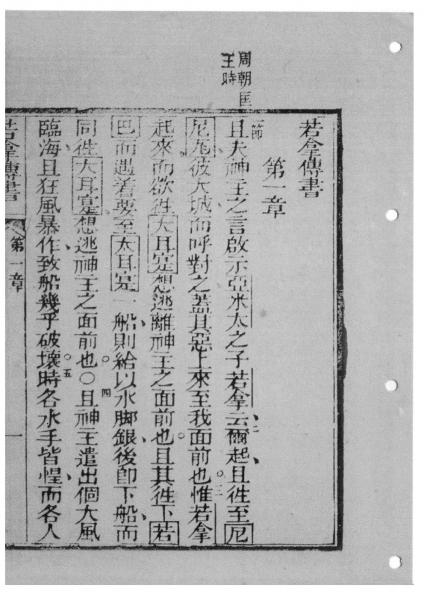 周朝匡
王時
若拿傳書
第一章
一節
且夫神王之言啟示亞米太之子若拿云爾起且徃至尼
尼瓦彼大城而呼對之蓋其惡上來至我面前也惟若拿
起來而欲徃大耳寔想逃離神王之面前也且其徃下若
巴而遇着要至大耳寔一船則給以水脚銀後卽下船而
同徃大耳寔想逃神王之面前也○且神王遣出個大風
臨海且狂風暴作致船幾乎破壞時各水手皆惶而各人
二
三
四
五
若拿傳書
第一章
一